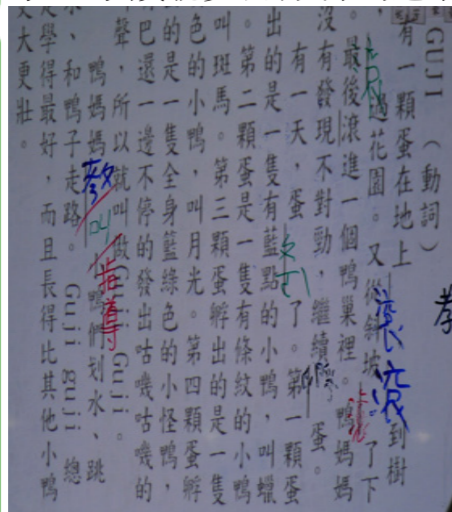 GUJI (動詞)
有一顆蛋在地上
過花園。又從斜坡 滾滾 到樹
。最後滾進一個鴨巢裡。鴨媽媽
沒有發現不對勁,繼續孵蛋。
有一天,蛋 了。第一顆蛋
出的是一隻有藍點的小鴨,叫蠟
。第二顆蛋是一隻有條紋的小鴨
叫斑馬。第三顆蛋孵出的是一隻
色的小鴨,叫月光。第四顆蛋孵
的是一隻全身藍綠色的小怪鴨,
巴還一邊不停的發出咕嘰咕嘰的
聲,所以就叫做Guji Guji。
鴨媽媽教 叫 指導小鴨們划水、跳
水、和鴨子走路。Guji guji 總
是學得最好,而且長得比其他小鴨
又大更壯。